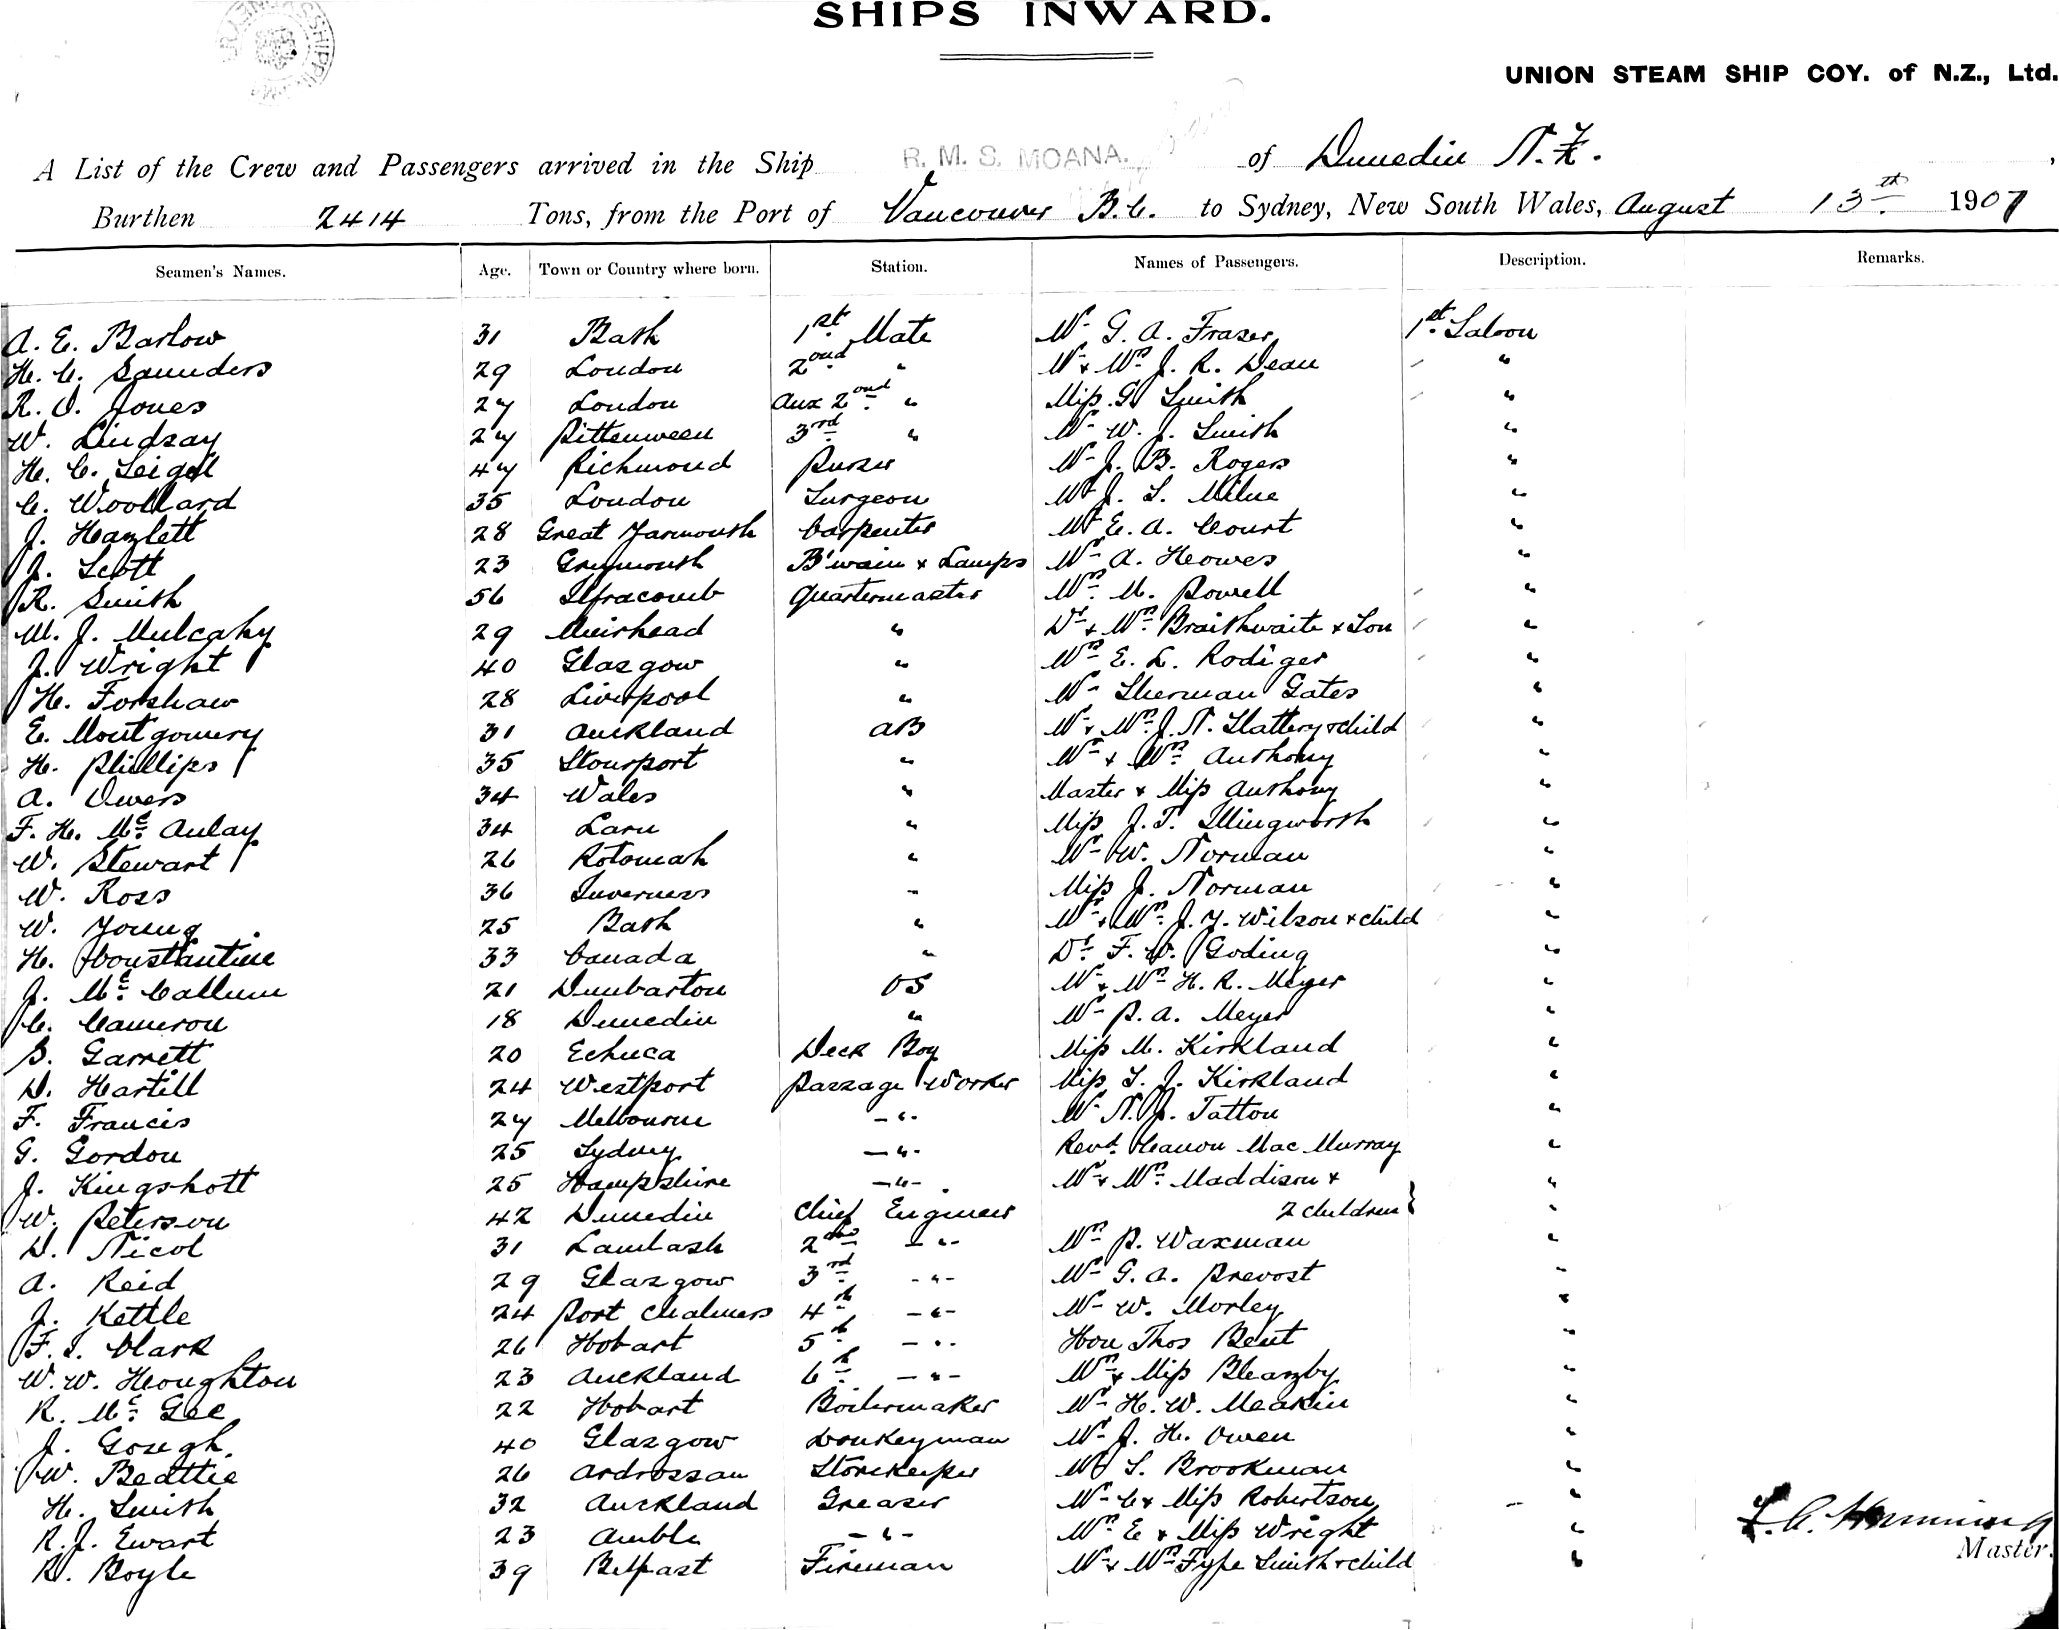 SHIPS INWARD.
UNION STEAM SHIP COY. of N.Z., Ltd.
A List of the Crew and Passengers arrived in the Ship R. M. S. MOANA. of Dunedin N.Z.
Burthen 2414 Tons, from the Port of Vancouver B.C. to Sydney, New South Wales, August 13th 1907
Seamen's Names. Age. Town or Country where born. Station. Names of Passengers. Description. Remarks.
A. E. Barlow 31 Bath 1st Mate Mr G. A. Fraser 1st Saloon
H. C. Saunders 29 London 2ond " Mr & Mrs J. R. Dean "
R. O. Jones 27 London Aux 2ond " Miss G. Smith "
W. Lindsay 27 Pittenween 3rd " Mr W. J. Smith "
H. C. 47 Richmond Purser Mr J. B. Rogers "
C. Woollard 35 London Surgeon Mr J. S. Milne "
J. Hazlett 28 Great Yarmouth Carpenter Mr E. A. Court "
J. Scott 23 Greymouth B'wain & Lamps Mr A. Howes "
R. Smith 56 Ilfracomb Quartermaster Mrs M. Powell "
M. J. Mulcahy 29 Muirhead " Dr & Mrs Braithwaite & Son "
J. Wright 40 Glasgow " Mrs E. L. Rodiger "
H. Forshaw 28 Liverpool " Mr Sherman Gates "
E. Montgomery 31 Auckland AB Mr & Mrs J. N. Slattery & child "
H. Phillips 35 Stourport " Mr & Mrs Anthony "
A. Owers 34 Wales " Master & Miss Anthony "
F. H. Mc Aulay 34 Larn " Miss J. T. Illingworth "
W. Stewart 26 Rotomah " Mr W. Norman "
W. Ross 36 Inverness " Miss J. Norman "
W. Young 25 Bath " Mr & Mrs J. Y. Wilson & child "
H. Constantine 33 Canada " Dr F. W. Goding "
J. Mc Callum 21 Dunbarton OS Mr & Mrs H. R. Meyer "
C. Cameron 18 Dunedin " Mr P. A. Meyer "
S. Garrett 20 Echuca Deck Boy Miss M. Kirkland "
D. Hartill 24 Westport Passage Worker Miss S. J. Kirkland "
F. Francis 27 Melbourne -"- Mr N. J. Tatton "
G. Gordon 25 Sydney -"- Revd Canon Mac Murray "
J. Kingshott 25 Hampshire -"- Mr & Mrs Maddison & "
W. Peterson 42 Dunedin Chief Engineer 2 children } "
D. Nicol 31 Lamlash 2ond -"- Mrs P. Waxman "
A. Reid 29 Glasgow 3rd -"- Mr G. A. Prevost "
J. Kettle 24 Port Chalmers 4th -"- Mr W. Morley "
F. S. Clark 26 Hobart 5th -"- Hon Thos Bent "
W. W. Houghton 23 Auckland 6th -"- Mrs & Miss Bleazby "
R. Mc Gee 22 Hobart Boilermaker Mr H. W. Meakin "
J. Gough. 40 Glasgow Donkeyman Mr J. H. Owen "
W. Beattie 26 Ardrossan Storekeeper Mr S. Brookman "
H. Smith 32 Auckland Greaser Mr C & Miss Robertson "
R. J. Ewart 23 Amble -"- Mrs E & Miss Wright "
R. Boyle 39 Belfast Fireman Mr & Mrs Fype Smith & child "
Master.